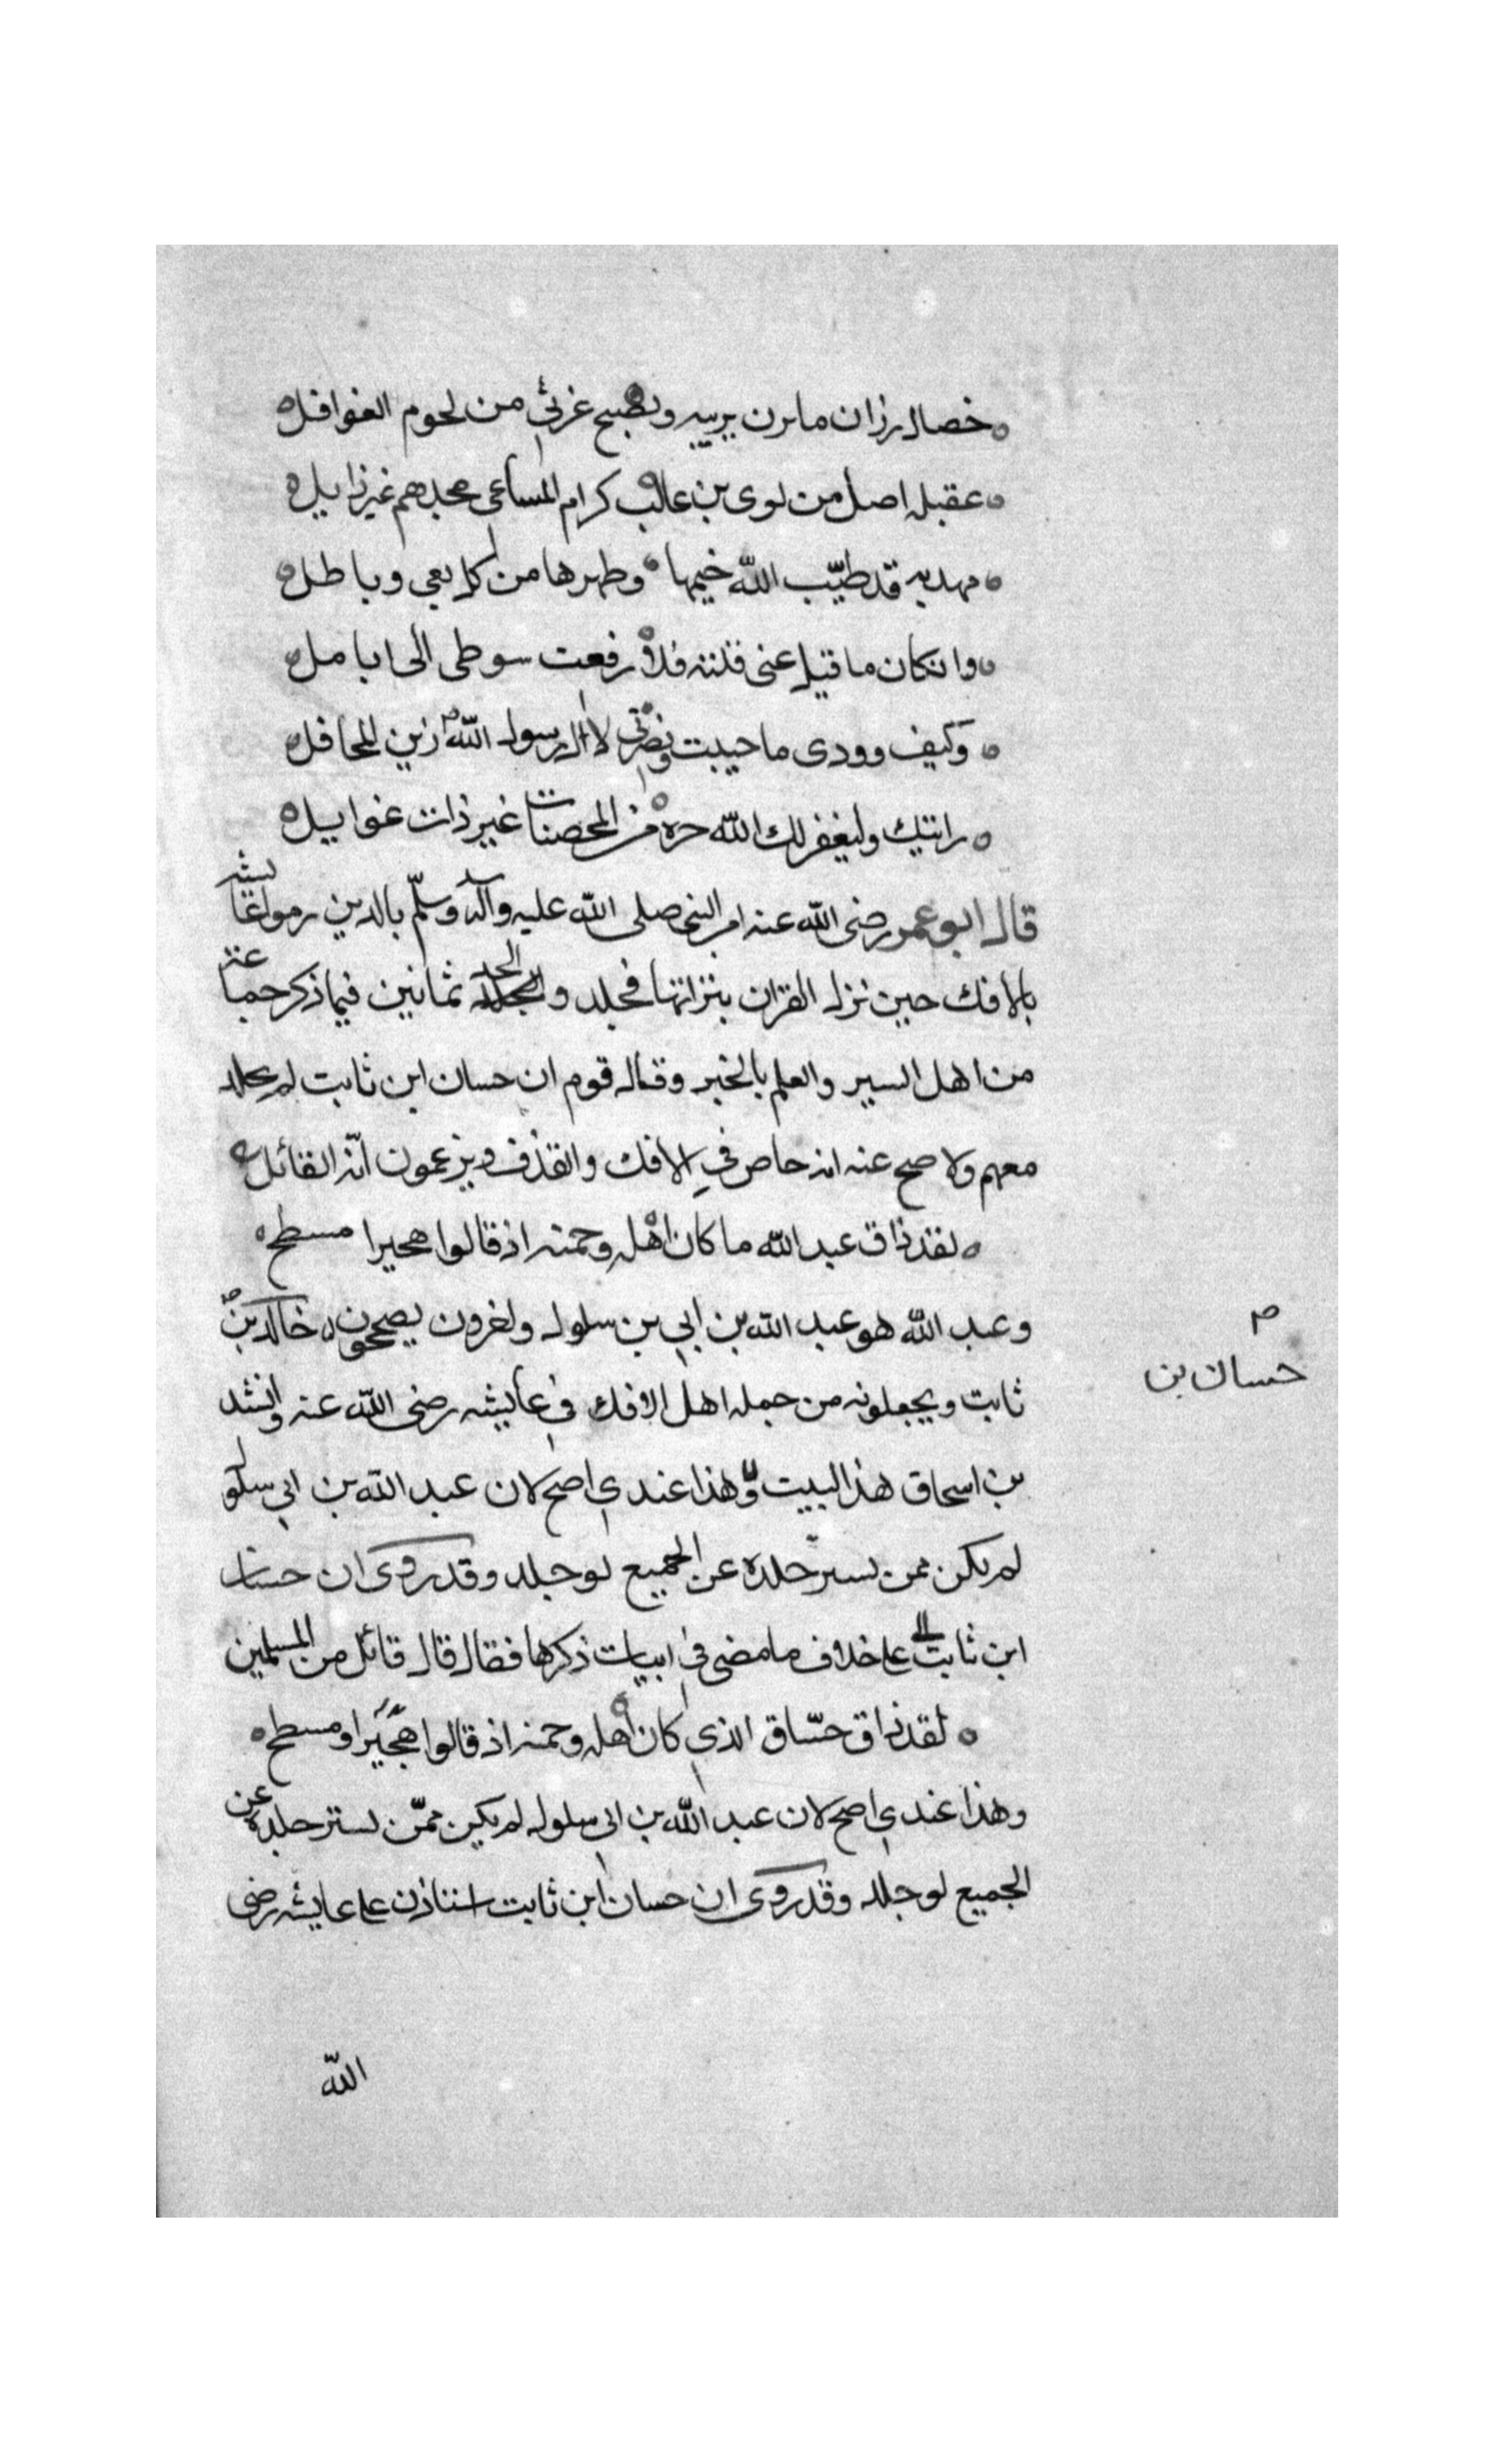 خصال رزان ما ترن بريبه وتصبح غرثى من لحوم الغوافل
عقيله اصل من لوى بن غالب كرام المساعى مجدهم غير زايل
مهذبه قد طيّب الله خيمها وطهرها من كل بغى وباطل
وانكان ما قيل عنى قلته فلا رفعت سوطى الى انامل
وكيف وودى ما حييت ونصرتى لال رسول الله زين المحافل
رايتك وليغفر لك الله حره من المحصنات غير ذات غوايل
قال ابو عمر رضى الله عنه امر النبى صلى الله عليه وآله وسلّم بالذين رموا عايشه
بالافك حين نزل القران ببراتها فجلد والحد ثمانين فيما ذكر جماعة
من اهل السير والعلم بالخبر وقال قوم ان حسان ابن ثابت لم يجلد
معهم ولا صح عنه انه خاص في الافك والقذف ويزعمون انّه القائل
لقد ذاق عبد الله ما كان اهله وحمنه اذ قالوا هجيرا مسطح
وعبد الله هو عبد الله بن ابي بن سلول واخرون يصححون خالد بن
حسان بن
ثابت ويجعلونه من جمله اهل الافك في عايشه رضى الله عنه وانشد
بن اسحاق هذا البيت وهذا عندي اصح لان عبد الله بن ابي سلول
لم يكن ممن يستر جلده عن الجميع لو جلد وقد روى ان حسان
ابن ثابت على خلاف ما مضى في ابيات ذكرها فقال قال قائل من المسلمين
لقد ذاق حسّاق الذي كان اهله وحمنه اذ قالوا هجيرا ومسطح
وهذا عندي اصح لان عبد الله بن ابى سلول لم يكن ممّن يستر جلده عن
الجميع لو جلد وقد روى ان حسان ابن ثابت استاذن على عايشه رضى
الله